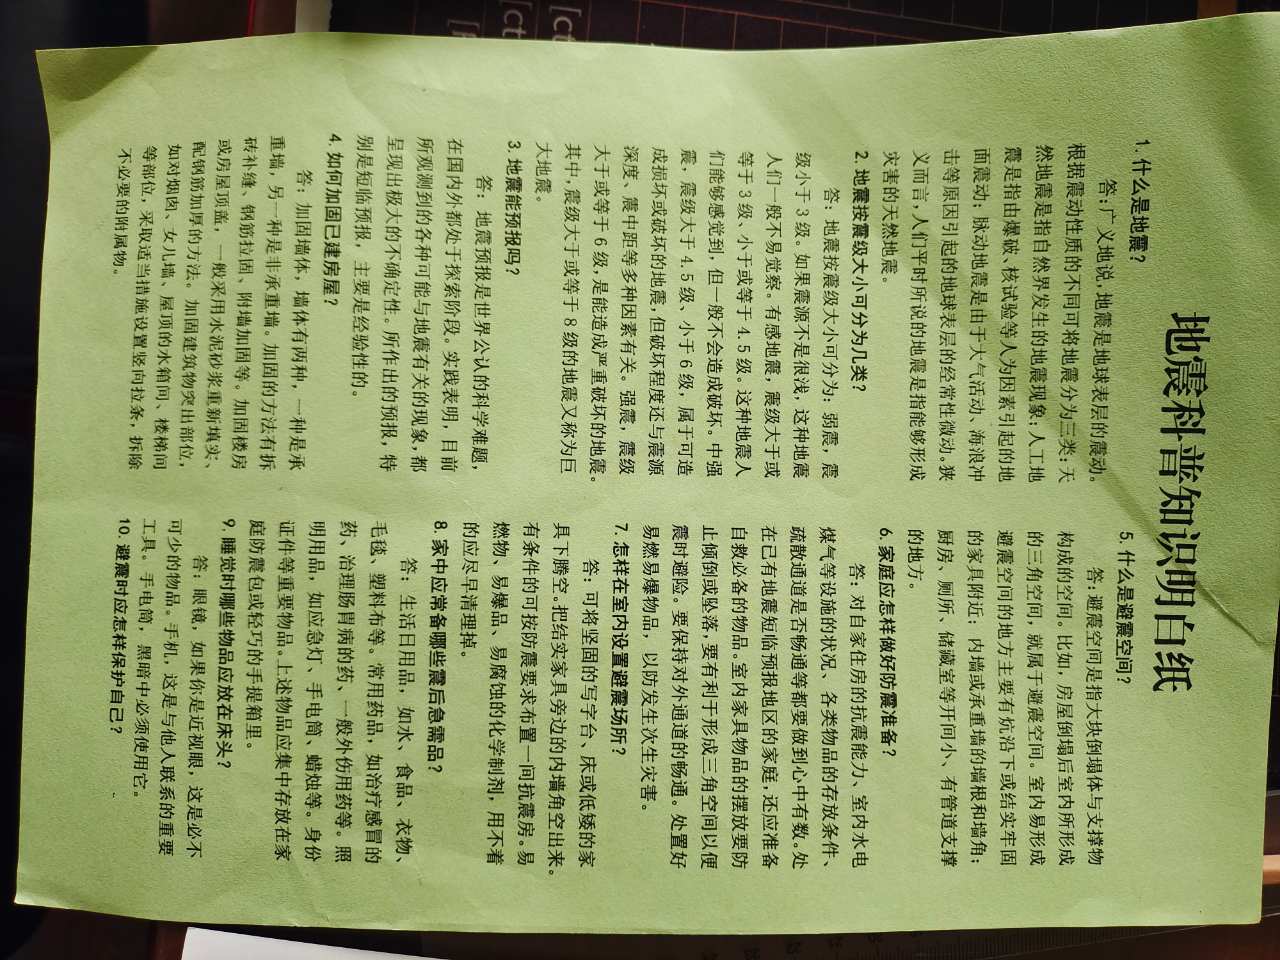 地震科普知识明白纸
1. 什么是地震?
答: 广义地说, 地震是地球表层的震动。
根据震动性质的不同可将地震分为三类: 天
然地震是指自然界发生的地震现象; 人工地
震是指由爆破、核试验等人为因素引起的地
面震动; 脉动地震是由于大气活动、海浪冲
击等原因引起的地球表层的经常性微动。狭
义而言, 人们平时所说的地震是指能够形成
灾害的天然地震。
2. 地震按震级大小可分为几类?
答: 地震按震级大小可分为: 弱震, 震
级小于 3 级。如果震源不是很浅, 这种地震
人们一般不易觉察。有感地震, 震级大于或
等于 3 级、小于或等于 4.5 级。这种地震人
们能够感觉到, 但一般不会造成破坏。中强
震, 震级大于 4.5 级、小于 6 级, 属于可造
成损坏或破坏的地震, 但破坏程度还与震源
深度、震中距等多种因素有关。强震, 震级
大于或等于 6 级, 是能造成严重破坏的地震。
其中, 震级大于或等于 8 级的地震又称为巨
大地震。
3. 地震能预报吗?
答: 地震预报是世界公认的科学难题,
在国内外都处于探索阶段。实践表明, 目前
所观测到的各种可能与地震有关的现象, 都
呈现出极大的不确定性。所作出的预报, 特
别是短临预报, 主要是经验性的。
4. 如何加固已建房屋?
答: 加固墙体, 墙体有两种, 一种是承
重墙, 另一种是非承重墙。加固的方法有拆
砖补缝、钢筋拉固、附墙加固等。加固楼房
或房屋顶盖, 一般采用水泥砂浆重新填实、
配钢筋加厚的方法。加固建筑物突出部位,
如对烟囱、女儿墙、屋顶的水箱间、楼梯间
等部位, 采取适当措施设置竖向拉条, 拆除
不必要的附属物。
5. 什么是避震空间?
答: 避震空间是指大块倒塌体与支撑物
构成的空间。比如, 房屋倒塌后室内所形成
的三角空间, 就属于避震空间。室内易形成
避震空间的地方主要有炕沿下或结实牢固
的家具附近; 内墙或承重墙的墙根和墙角;
厨房、厕所、储藏室等开间小、有管道支撑
的地方。
6. 家庭应怎样做好防震准备?
答: 对自家住房的抗震能力、室内水电
煤气等设施的状况、各类物品的存放条件、
疏散通道是否畅通等都要做到心中有数。处
在已有地震短临预报地区的家庭, 还应准备
自救必备的物品。室内家具物品的摆放要防
止倾倒或坠落, 要有利于形成三角空间以便
震时避险。要保持对外通道的畅通。处置好
易燃易爆物品, 以防发生次生灾害。
7. 怎样在室内设置避震场所?
答: 可将坚固的写字台、床或低矮的家
具下腾空。把结实家具旁边的内墙角空出来。
有条件的可按防震要求布置一间抗震房。易
燃物、易爆品、易腐蚀的化学制剂, 用不着
的应尽早清理掉。
8. 家中应常备哪些震后急需品?
答: 生活日用品, 如水、食品、衣物、
毛毯、塑料布等。常用药品, 如治疗感冒的
药、治理肠胃病的药、一般外伤用药等。照
明用品, 如应急灯、手电筒、蜡烛等。身份
证件等重要物品。上述物品应集中存放在家
庭防震包或轻巧的手提箱里。
9. 睡觉时哪些物品应放在床头?
答: 眼镜, 如果你是近视眼, 这是必不
可少的物品。手机, 这是与他人联系的重要
工具。手电筒, 黑暗中必须使用它。
10. 避震时应怎样保护自己?